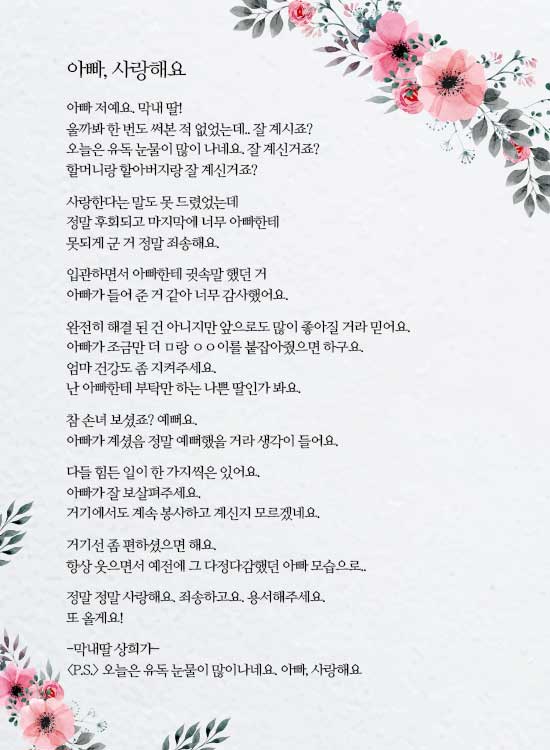 아빠, 사랑해요
아빠 저예요. 막내 딸!
울까봐 한 번도 써본 적 없었는데.. 잘 계시죠?
오늘은 유독 눈물이 많이 나네요. 잘 계신거죠?
할머니랑 할아버지랑 잘 계신거죠?
사랑한다는 말도 못 드렸었는데
정말 후회되고 마지막에 너무 아빠한테
못되게 군 거 정말 죄송해요.
입관하면서 아빠한테 귓속말 했던 거
아빠가 들어 준 거 같아 너무 감사했어요.
완전히 해결 된 건 아니지만 앞으로도 많이 좋아질 거라 믿어요.
아빠가 조금만 더 ㅁ랑 ㅇㅇ이를 붙잡아줬으면 하구요.
엄마 건강도 좀 지켜주세요.
난 아빠한테 부탁만 하는 나쁜 딸인가 봐요.
참 손녀 보셨죠? 예뻐요.
아빠가 계셨음 정말 예뻐했을 거라 생각이 들어요.
다들 힘든 일이 한 가지씩은 있어요.
아빠가 잘 보살펴주세요.
거기에서도 계속 봉사하고 계신지 모르겠네요.
거기선 좀 편하셨으면 해요.
항상 웃으면서 예전에 그 다정다감했던 아빠 모습으로..
정말 정말 사랑해요. 죄송하고요. 용서해주세요.
또 올게요!
-막내딸 상희가-
<P.S.> 오늘은 유독 눈물이 많이나네요. 아빠, 사랑해요